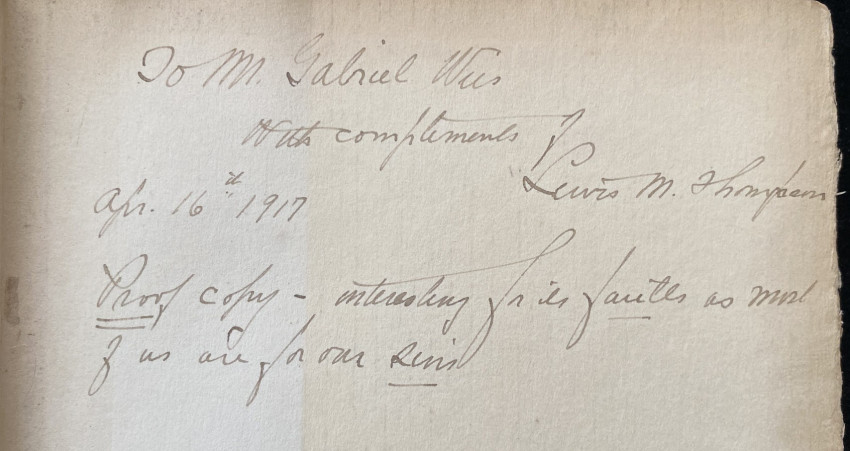 To Mr. Gabriel Weis
With complements of
Lewis M. Thompson
Apr. 16th 1917
Proof copy - interesting for its faults as most
of us are for our sins